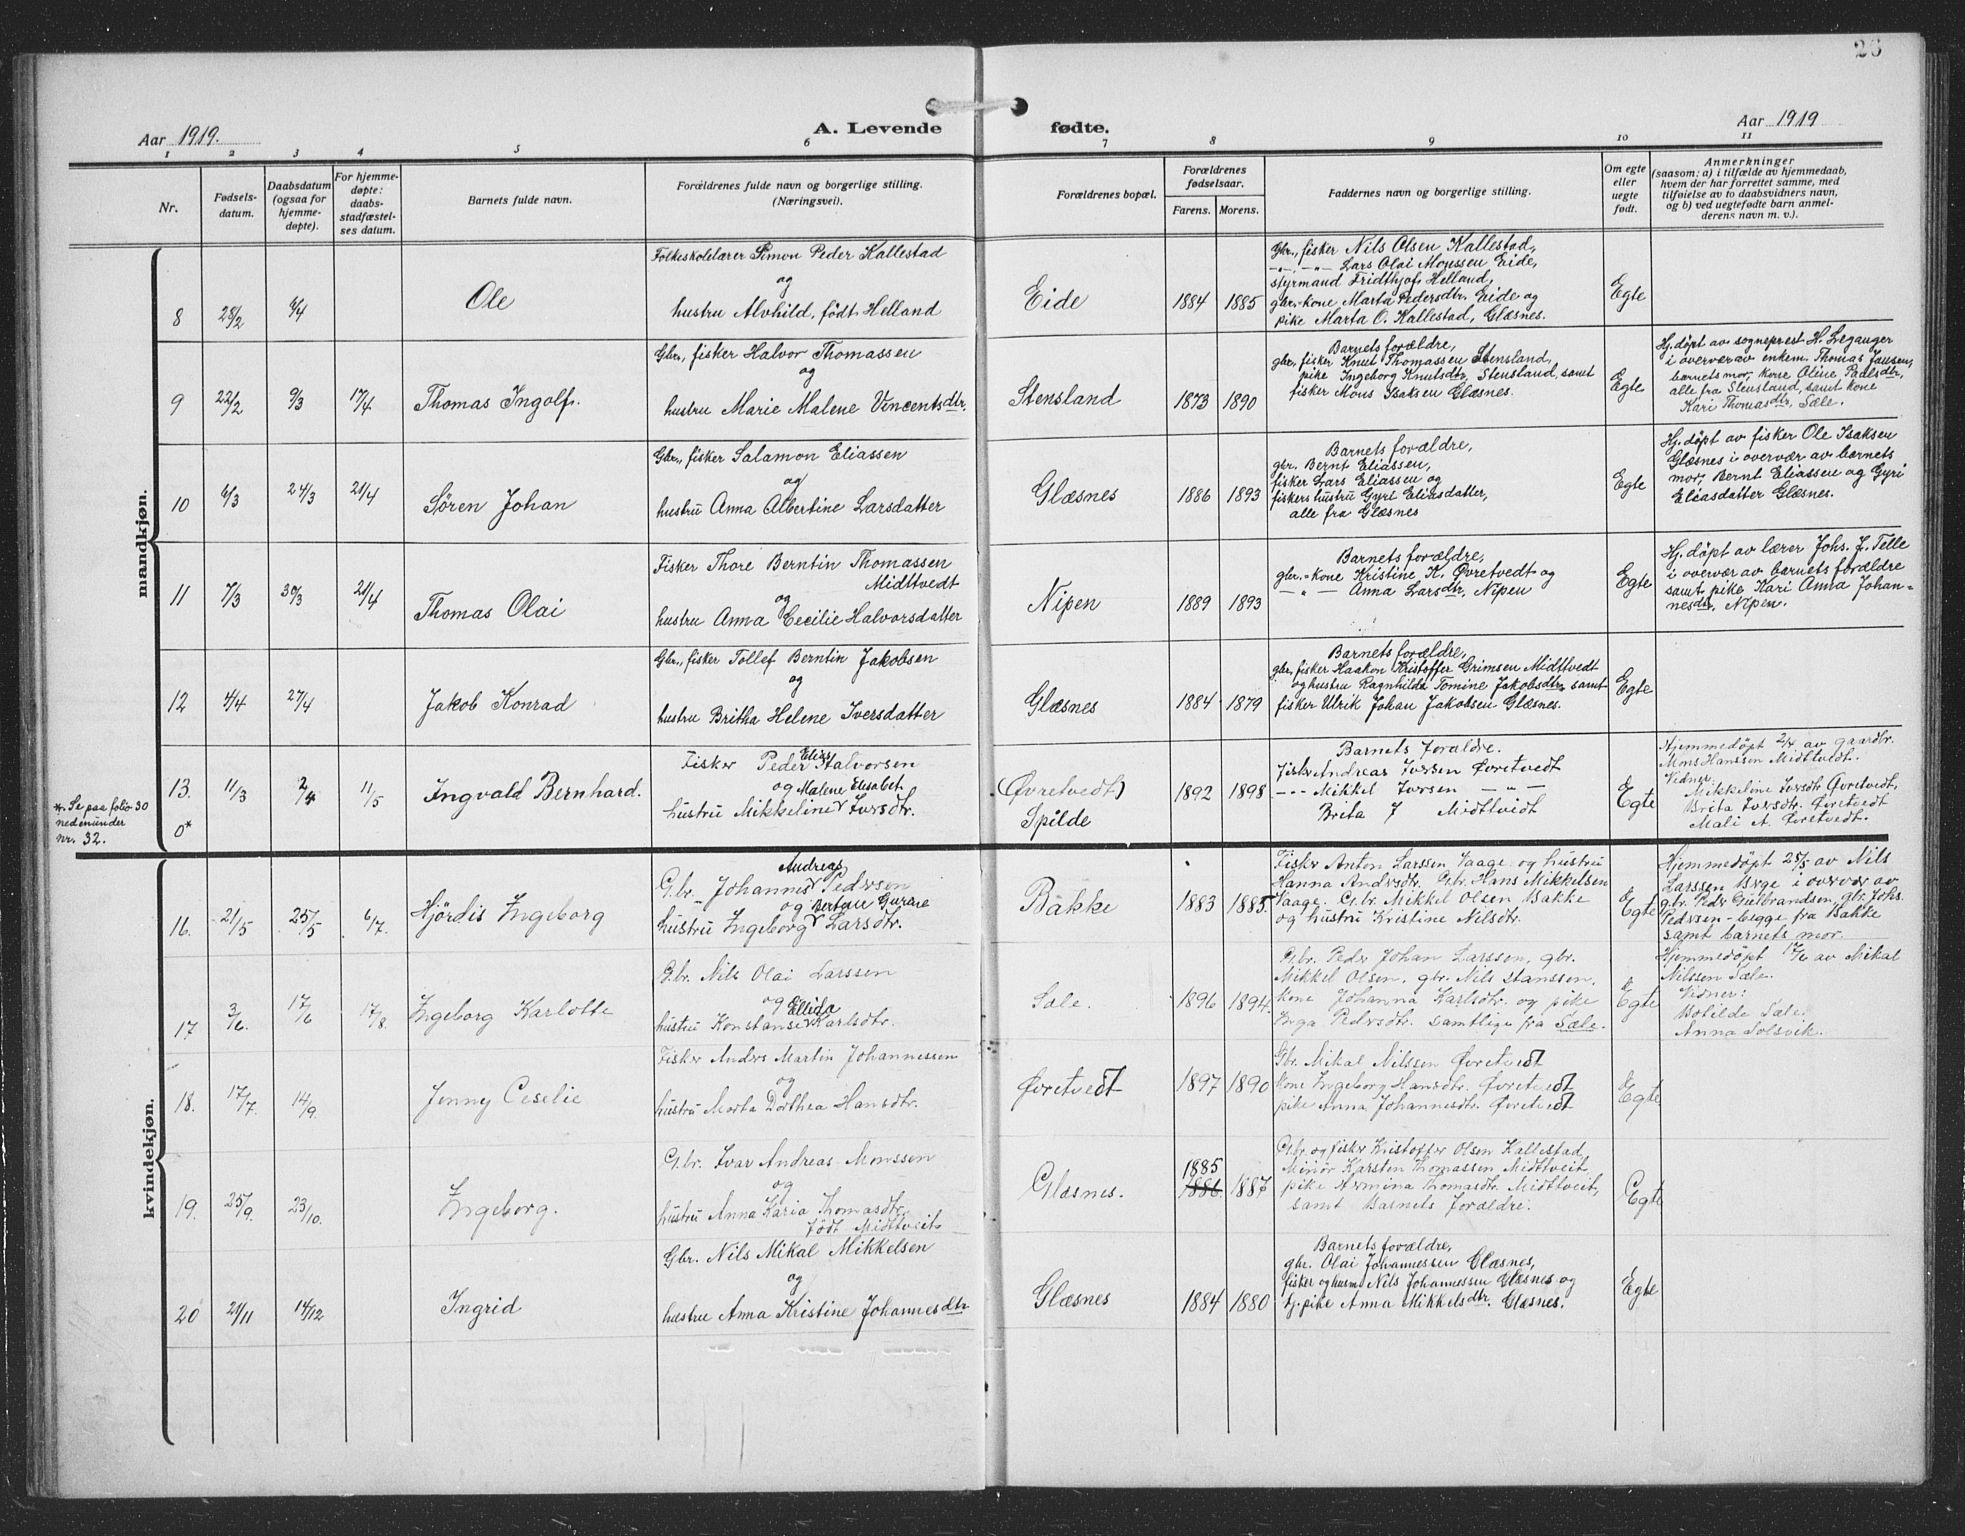 26
Aar 1919.
A. Levende fødte.
Aar 1919
1 2 3 4 5 6 7 8 9 10 11
Nr.
Fødsels-
datum.
Daabsdatum
(ogsaa for
hjemme-
døpte).
For hjemme-
døpte:
daabs-
stadfæstel-
ses datum.
Barnets fulde navn.
Forældrenes fulde navn og borgerlige stilling.
(Næringsvei).
Forældrenes bopæl.
Forældrenes
fødselsaar.
Farens. Morens.
Faddernes navn og borgerlige stilling.
Om egte
eller
uegte
født.
Anmerkninger
(saasom: a) i tilfælde av hjemmedaab,
hvem der har forrettet samme, med
tilføielse av to daabsvidners navn,
og b) ved uegtefødte barn anmel-
derens navn m. v.).
mandkjøn.
8 28/2 6/4 Ole
Folkeskolelærer Simon Peder Kallestad
og
hustru Alvhild, født Helland
Eide 1884 1885
Gbr., fisker Nils Olsen Kallestad,
-„- -„- Lars Olai Moyssen Eide,
styrmand Fridthjof Helland,
gbr.-kone Marta Pedersdtr. Eide og
pike Marta O. Kallestad, Glæsnes.
Egte
9 22/2 9/3 17/4 Thomas Ingolf.
Gbr., fisker Halvor Thomassen
og
hustru Marie Malene Vincentsdtr.
Stensland 1873 1890
Barnets forældre,
gbr., fisker Knut Thomassen Stensland,
pike Ingeborg Knutsdtr. Stensland, samt
fisker Mons Isaksen Glæsnes.
Egte
Hj. døpt av sogneprest H. Leganger
i overvær av enkem. Thomas Jansen,
barnets mor, kone Oline Paalsdtr,
alle fra Stensland, samt kone
Kari Thomasdtr, Sæle.
10 6/3 24/3 21/4 Søren Johan
Gbr., fisker Salamon Eliassen
og
hustru Anna Albertine Larsdatter
Glæsnes 1886 1893
Barnets forældre,
gbr. Bernt Eliassen,
fisker Lars Eliassen og
fiskers hustru Gyri Eliasdatter,
alle fra Glæsnes
Egte
Hj. døpt av fisker Ole Isaksen
Glæsnes i overvær av barnets
mor, Bernt Eliassen og Gyri
Eliasdatter Glæsnes.
11 7/3 30/3 21/4 Thomas Olai
Fisker Thore Berntin Thomassen
Midttvedt
og
hustru Anna Cecilie Halvorsdatter
Nipen 1889 1893
Barnets forældre,
gbr.-kone Kristine K. Øvretvedt og
-„- Anna Larsdtr, Nipen
Egte
Hj. døpt av lærer Johs. J. Telle
i overvær av barnets forældre
samt pike Kari Anna Johan-
nesdtr, Nipen.
12 4/4 27/4 Jakob Konrad
Gbr., fisker Tollef Berntin Jakobsen
og
hustru Britha Helene Iversdatter
Glæsnes 1884 1879
Barnets forældre,
gbr., fisker Haakon Kristoffer Grimsen Midttvedt
og hustru Ragnhilda Tomine Jakobsdtr, samt
fisker Ulrik Johan Jakobsen Glæsnes.
Egte
13. 11/3 2/4 11/5 Ingvald Bernhard.
Fisker Peder Elias Halvorsen
og Malene Elisabet
hustru Mikkeline Iversdtr.
(Øvretvedt)
Spilde
1892 1898
Barnets Foreldre.
Fisker Andreas Iversen Øvretvedt
-„- Mikkel Iversen -„-
Brita J Midttvedt
Egte
Hjemmedøpt 2/4 av gaardbr.
Mons Hansson Midttvedt.
Vidner:
Mikkeline Iversdtr Øvretvedt,
Brita Iversdtr. Øvretvedt
Mali A. Øvretvedt.
*. Se paa folio 30
nedenunder
nr. 32.
0*
kvindekjøn.
16. 21/5 25/5 6/7. Hjördis Ingeborg
Gbr. Johannes Andreas Pedersen
og Bertine Gurine
hustru Ingeborg Larsdtr.
Bakke 1883 1885.
Fisker Anton Larssen Vaage og hustru
Hanna Andersdtr. Gbr. Hans Mikkelsen
Vaage. Gbr. Mikkel Olsen Bakke
og hustru Kristine Nilsdtr.
Egte
Hjemmedøpt 25/5 av Nils
Larssen Berge i overvær av
gbr. Peder Gulbrandsen, gbr. Johs.
Pedersen - begge fra Bakke
samt barnets mor.
17 3/6. 17/6 17/8. Ingeborg Karlotte
Gbr. Nils Olai Larssen
og Ellida
hustru Konstanse Karlsdtr.
Sæle. 1896 1894.
Gbr. Peder Johan Larsson, gbr.
Mikkel Olsen, gbr. Nils Hanssen,
kone Johanna Karlsdtr. og pike
Inga Pedersdtr. samtlige fra Sæle.
Egte
Hjemmedøpt 17/6 av Mikal
Nilssen Sæle.
Vidner:
Botilde Sæle.
Anna Solsvik.
18. 17/7. 14/9. Jenny Ceselie
Fisker Anders Martin Johannessen
og
hustru Marta Dorthea Hansdtr.
Øvretvedt 1897 1890
Gbr. Mikal Nilssen Øvretvedt
kone Ingeborg Hansdtr. Øvretvedt
pike Anna Johannesdtr. Øvretvedt
Egte
19. 25/9. 23/10. Ingeborg.
Gbr. Ivar Andreas Monssen
og
hustru Anna Karia Thomasdtr.
født Midttveit
Glæsnes. 1885 1886. 1887
Gbr og fisker Kristoffer Olsen Kallestad,
Minör Karsten Thomassen Midttveit,
pike Armina Thomasdtr. Midttveit,
samt Barnets Forældre.
Egte
20 21/11 14/12 Ingrid
Gbr. Nils Mikal Mikkelsen
og
hustru Anna Kristine Johannesdtr
Glæsnes 1884 1880
Barnets forældre,
gbr. Olai Johannessen Glæsnes,
fisker og husm. Nils Johannessen Glæsnes og
tj. pike Anna Mikkelsdtr. Glæsnes.
Egte